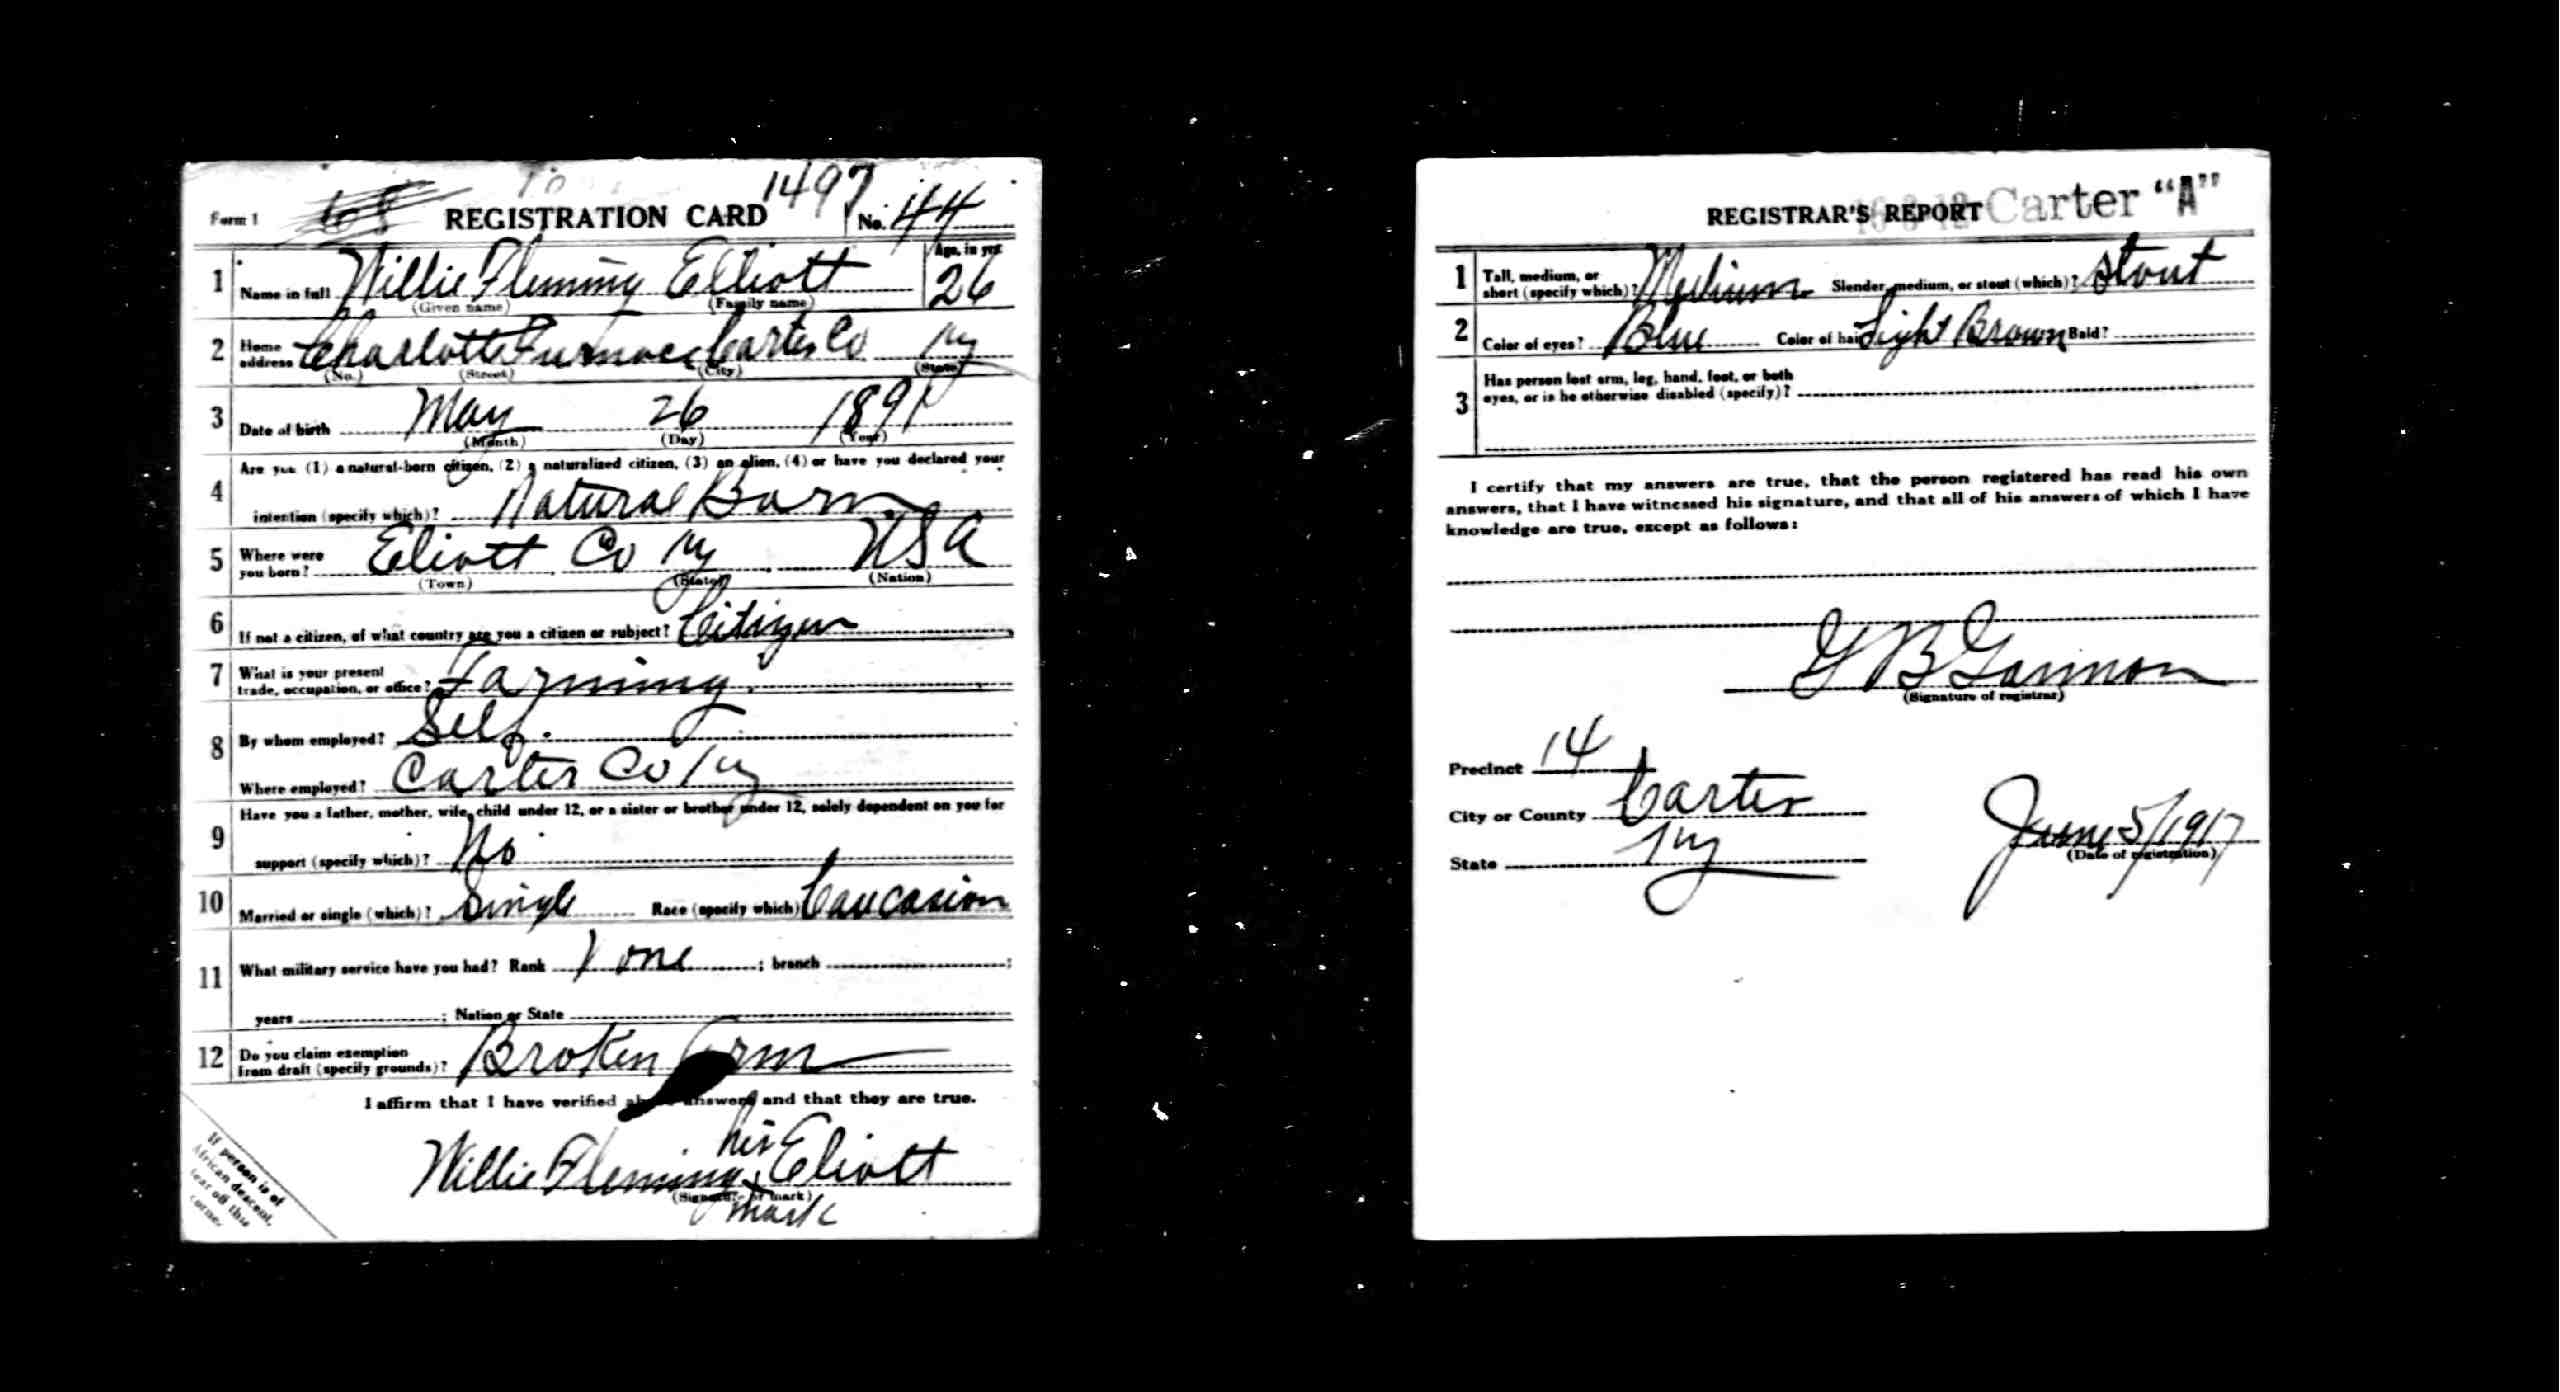 1497
Form 1 68 REGISTRATION CARD No. 44
1 Name in full Willie Fleming Elliott Age, in yrs 26
(Given name) (Family name)
2 Home address Charlotte Furnace Carter Co Ky
(No.) (Street) (City) (State)
3 Date of birth May 26 1891
(Month) (Day) (Year)
4 Are you (1) a natural-born citizen, (2) a naturalized citizen, (3) an alien, (4) or have you declared your
intention (specify which)? Natural Born
5 Where were you born? Eliott Co Ky USA
(Town) (State) (Nation)
6 If not a citizen, of what country are you a citizen or subject? Citizen
7 What is your present trade, occupation, or office? Farming
8 By whom employed? Self.
Where employed? Carter Co Ky
9 Have you a father, mother, wife, child under 12, or a sister or brother under 12, solely dependent on you for
support (specify which)? No
10 Married or single (which)? Single Race (specify which) Caucasion
11 What military service have you had? Rank None ; branch ;
years ; Nation or State
12 Do you claim exemption from draft (specify grounds)? Broken Arm
I affirm that I have verified above answers and that they are true.
his
Willie Fleming x Eliott
(Signature or mark)
mark
If person is of
African descent,
tear off this
corner.
REGISTRAR'S REPORT 16-3-12 Carter "A"
1 Tall, medium, or short (specify which)? Medium Slender, medium, or stout (which)? Stout
2 Color of eyes? Blue Color of hair Light Brown Bald?
3 Has person lost arm, leg, hand, foot, or both
eyes, or is he otherwise disabled (specify)?
I certify that my answers are true, that the person registered has read his own
answers, that I have witnessed his signature, and that all of his answers of which I have
knowledge are true, except as follows:
G B Gannon
(Signature of registrar)
Precinct 14
City or County Carter
State Ky
June 5/1917
(Date of registration)